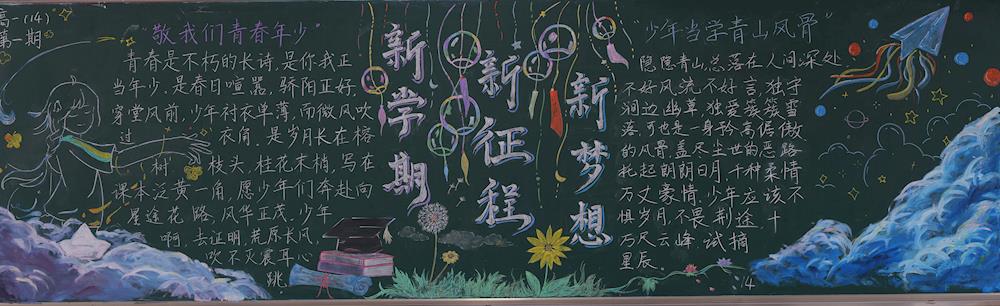 高一(14)
第一期
"敬我们青春年少"
青春是不朽的长诗,是你我正
当年少.是春日喧嚣,骄阳正好,
穿堂风前,少年衬衣单薄,而微风吹
过 衣角.是岁月长在榕
树 枝头,桂花木梢,写在
课本泛黄一角,愿少年们奔赴向
星途花路,风华正茂.少年
啊,去证明,荒原长风,
吹不灭震耳心
跳.
新学期
新征程
新梦想
"少年当学青山风骨"
隐隐青山,总落在人间深处
不好风流不好言,独守
涧边幽草,独爱簇簇雪
落.可也是一身矜高倨傲
的风骨,盖尽尘世的恶路
托起朗朗日月,十种柔情
万丈豪情,少年应该不
惧岁月不畏荆途,十
万尺云峰试摘
星辰.
14